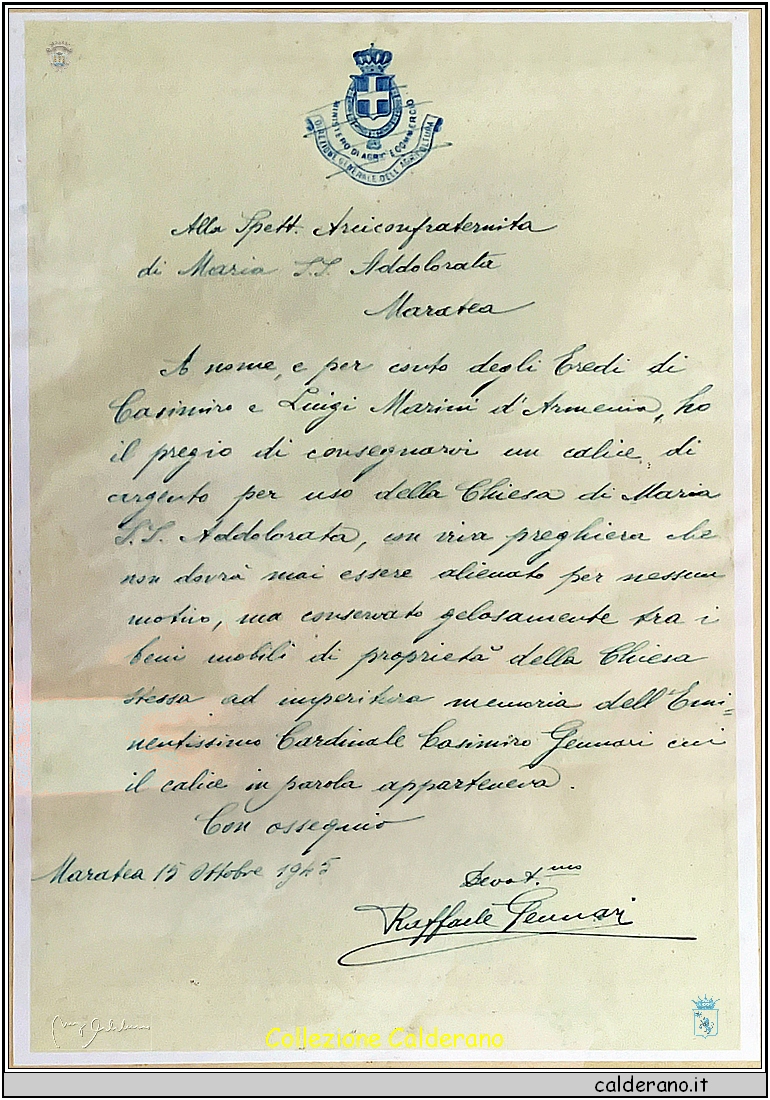 MINISTERO DI AGRIC. E COMMERCIO
DIREZIONE GENERALE DELL'AGRICOLTURA
Alla Spett. Arciconfraternita
di Maria S.S. Addolorata
Maratea
A nome, e per conto degli Eredi di
Casimiro e Luigi Marini d'Armenia, ho
il pregio di consegnarvi un calice di
argento per uso della Chiesa di Maria
S.S. Addolorata, con viva preghiera che
non dovrà mai essere alienato per nessun
motivo, ma conservato gelosamente tra i
beni mobili di proprietà della Chiesa
stessa ad imperitura memoria dell'Emi=
nentissimo Cardinale Casimiro Gennari cui
il calice in parola apparteneva.
Con ossequio
Maratea 15 Ottobre 1945
Devot.mo
Raffaele Gennari
Collezione Calderano
calderano.it